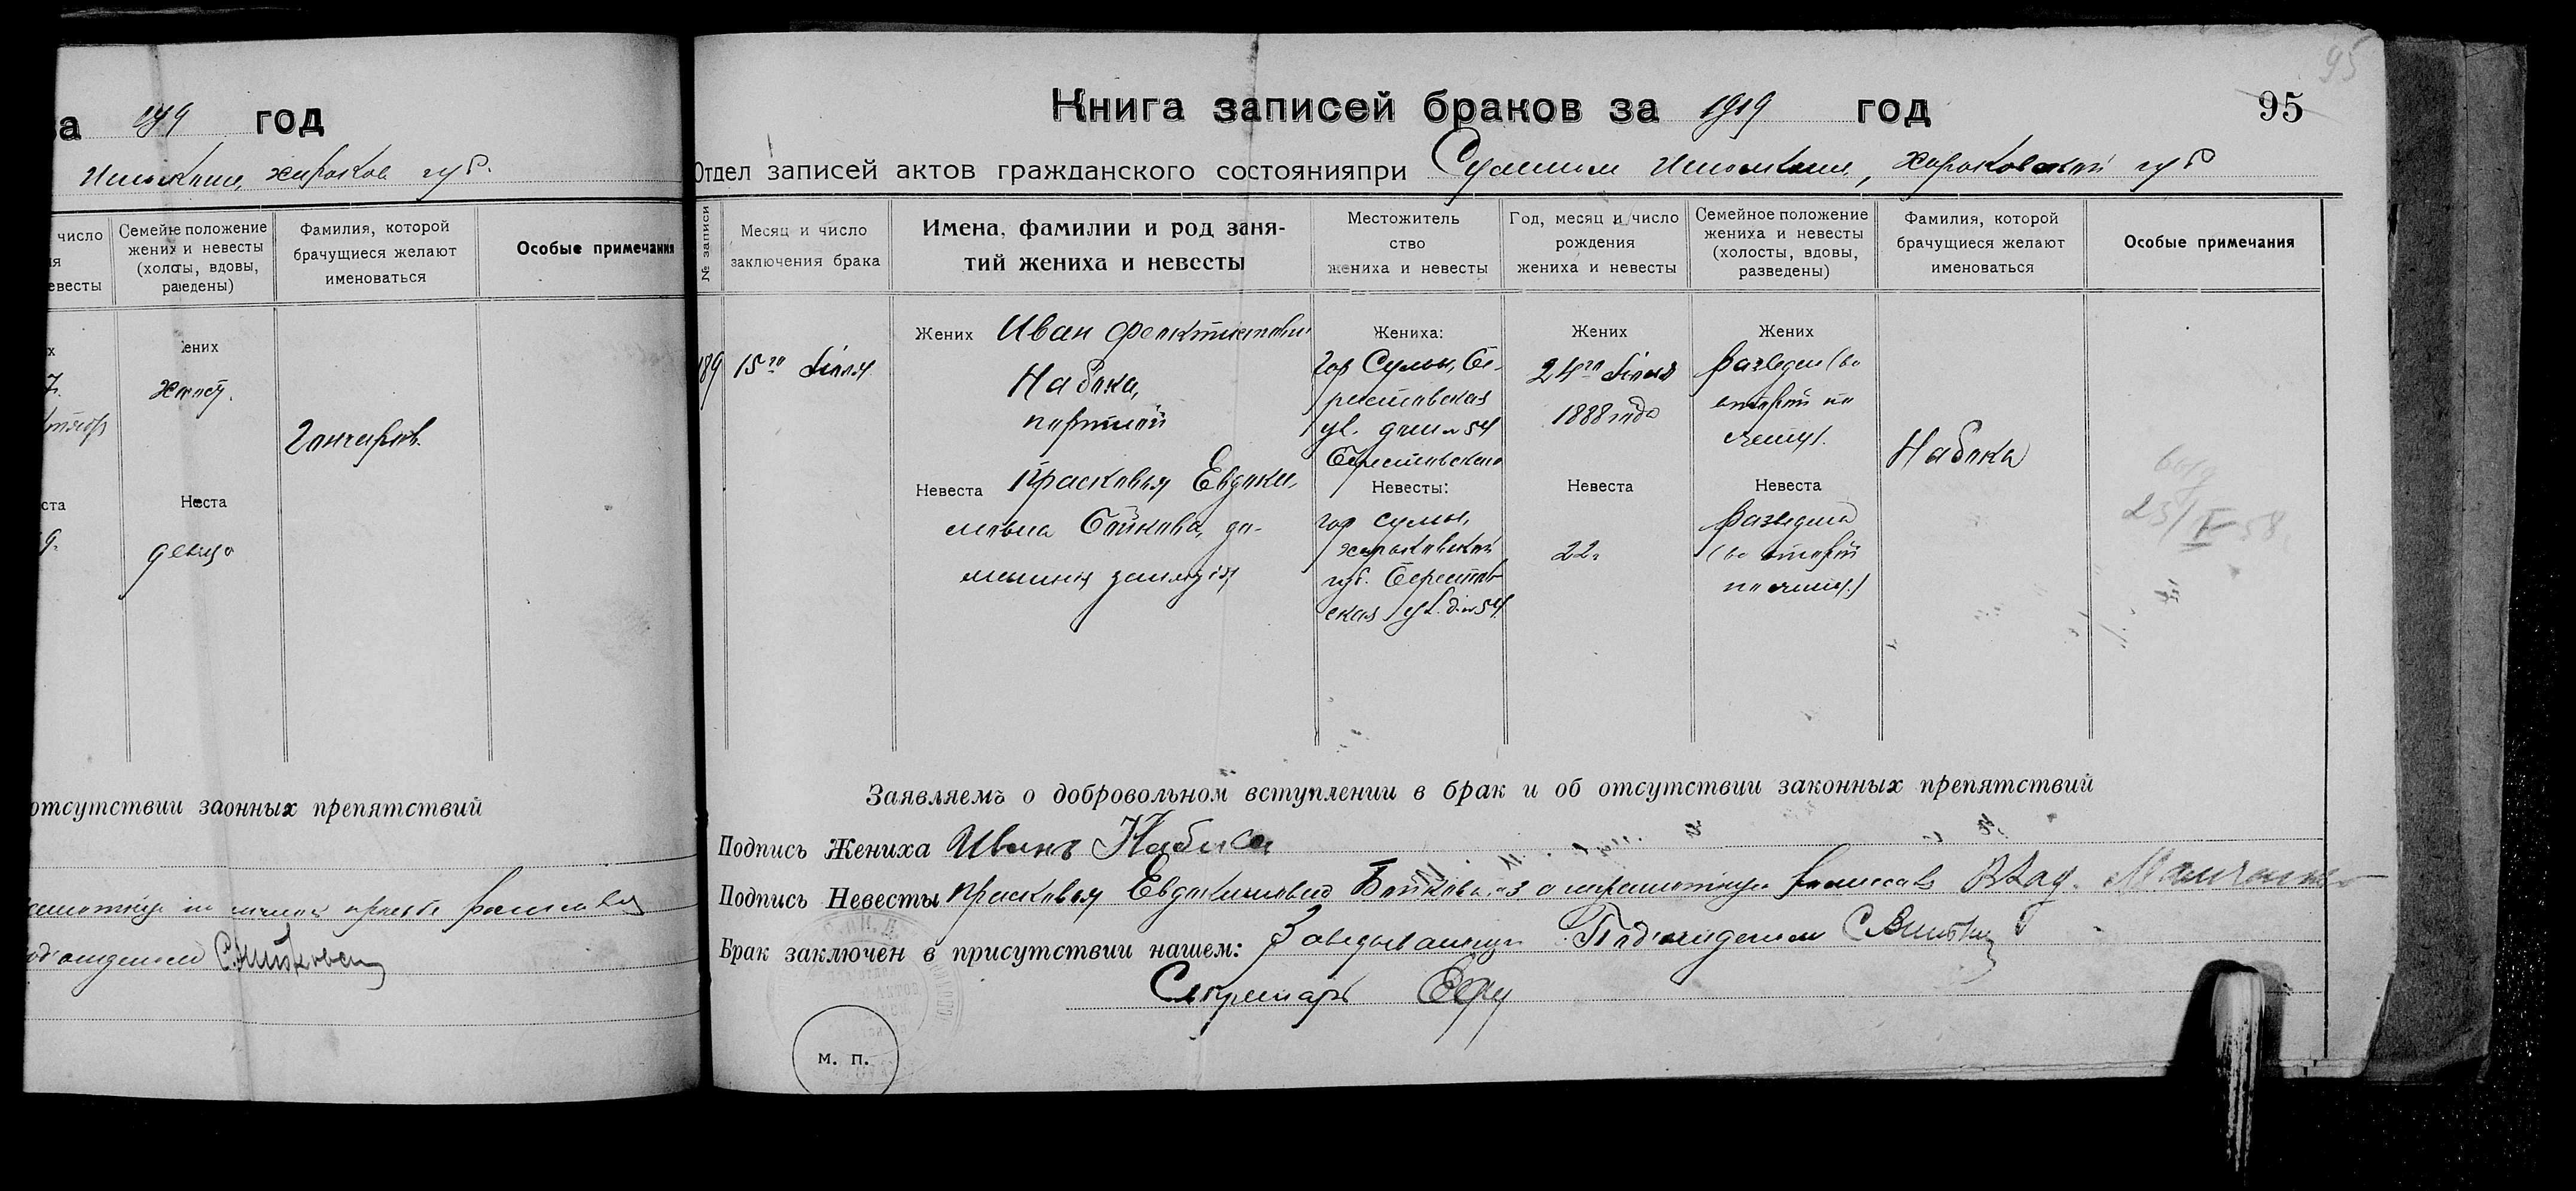 за 1919 год
Исполкоме, Харьков губ.
число
Семейное положение
жениха и невесты
(холосты, вдовы,
разведены)
Фамилия, которой
брачущиеся желают
именоваться
Особые примечания
евесты
Жених
холост.
Гончаров.
Невеста
девица
отсутствии законных препятствий
95
Книга записей браков за 1919 год 95
Отдел записей актов гражданского состоянияпри Сумском Исполкоме, Харьковской губ
№ записи
Месяц и число
заключения брака
Имена, фамилии и род заня-
тий жениха и невесты
Местожитель
ство
жениха и невесты
Год, месяц и число
рождения
жениха и невесты
Семейное положение
жениха и невесты
(холосты, вдовы,
разведены)
Фамилия, которой
брачущиеся желают
именоваться
Особые примечания
189
15го Июля
Жених Иван Феоктистович
Набока,
портной
Невеста Прасковья Евдоки-
мовна Бойкова, до-
машния занятия
Жениха:
гор Сумы, Бе-
рестовская
ул. дом № 54
Берестовского
Невесты:
гор Сумы,
Харьковской
губ. Берестов-
ская ул. д. № 54
Жених
24го Июня
1888 года
Невеста
22
Жених
разведен (во
второй по
счету).
Невеста
разведена
(во второй
по счету)
Набока
23/V-58
Заявляемъ о добровольном вступлении в брак и об отсутствии законных препятствий
Подпись Жениха Иванъ Набока
Подпись Невесты Прасковья Евдокимовна Бойкова а за неграмотную росписался
Брак заключен в присутствии нашем: Заведывающий Подотделом
Секретарь
м. п.